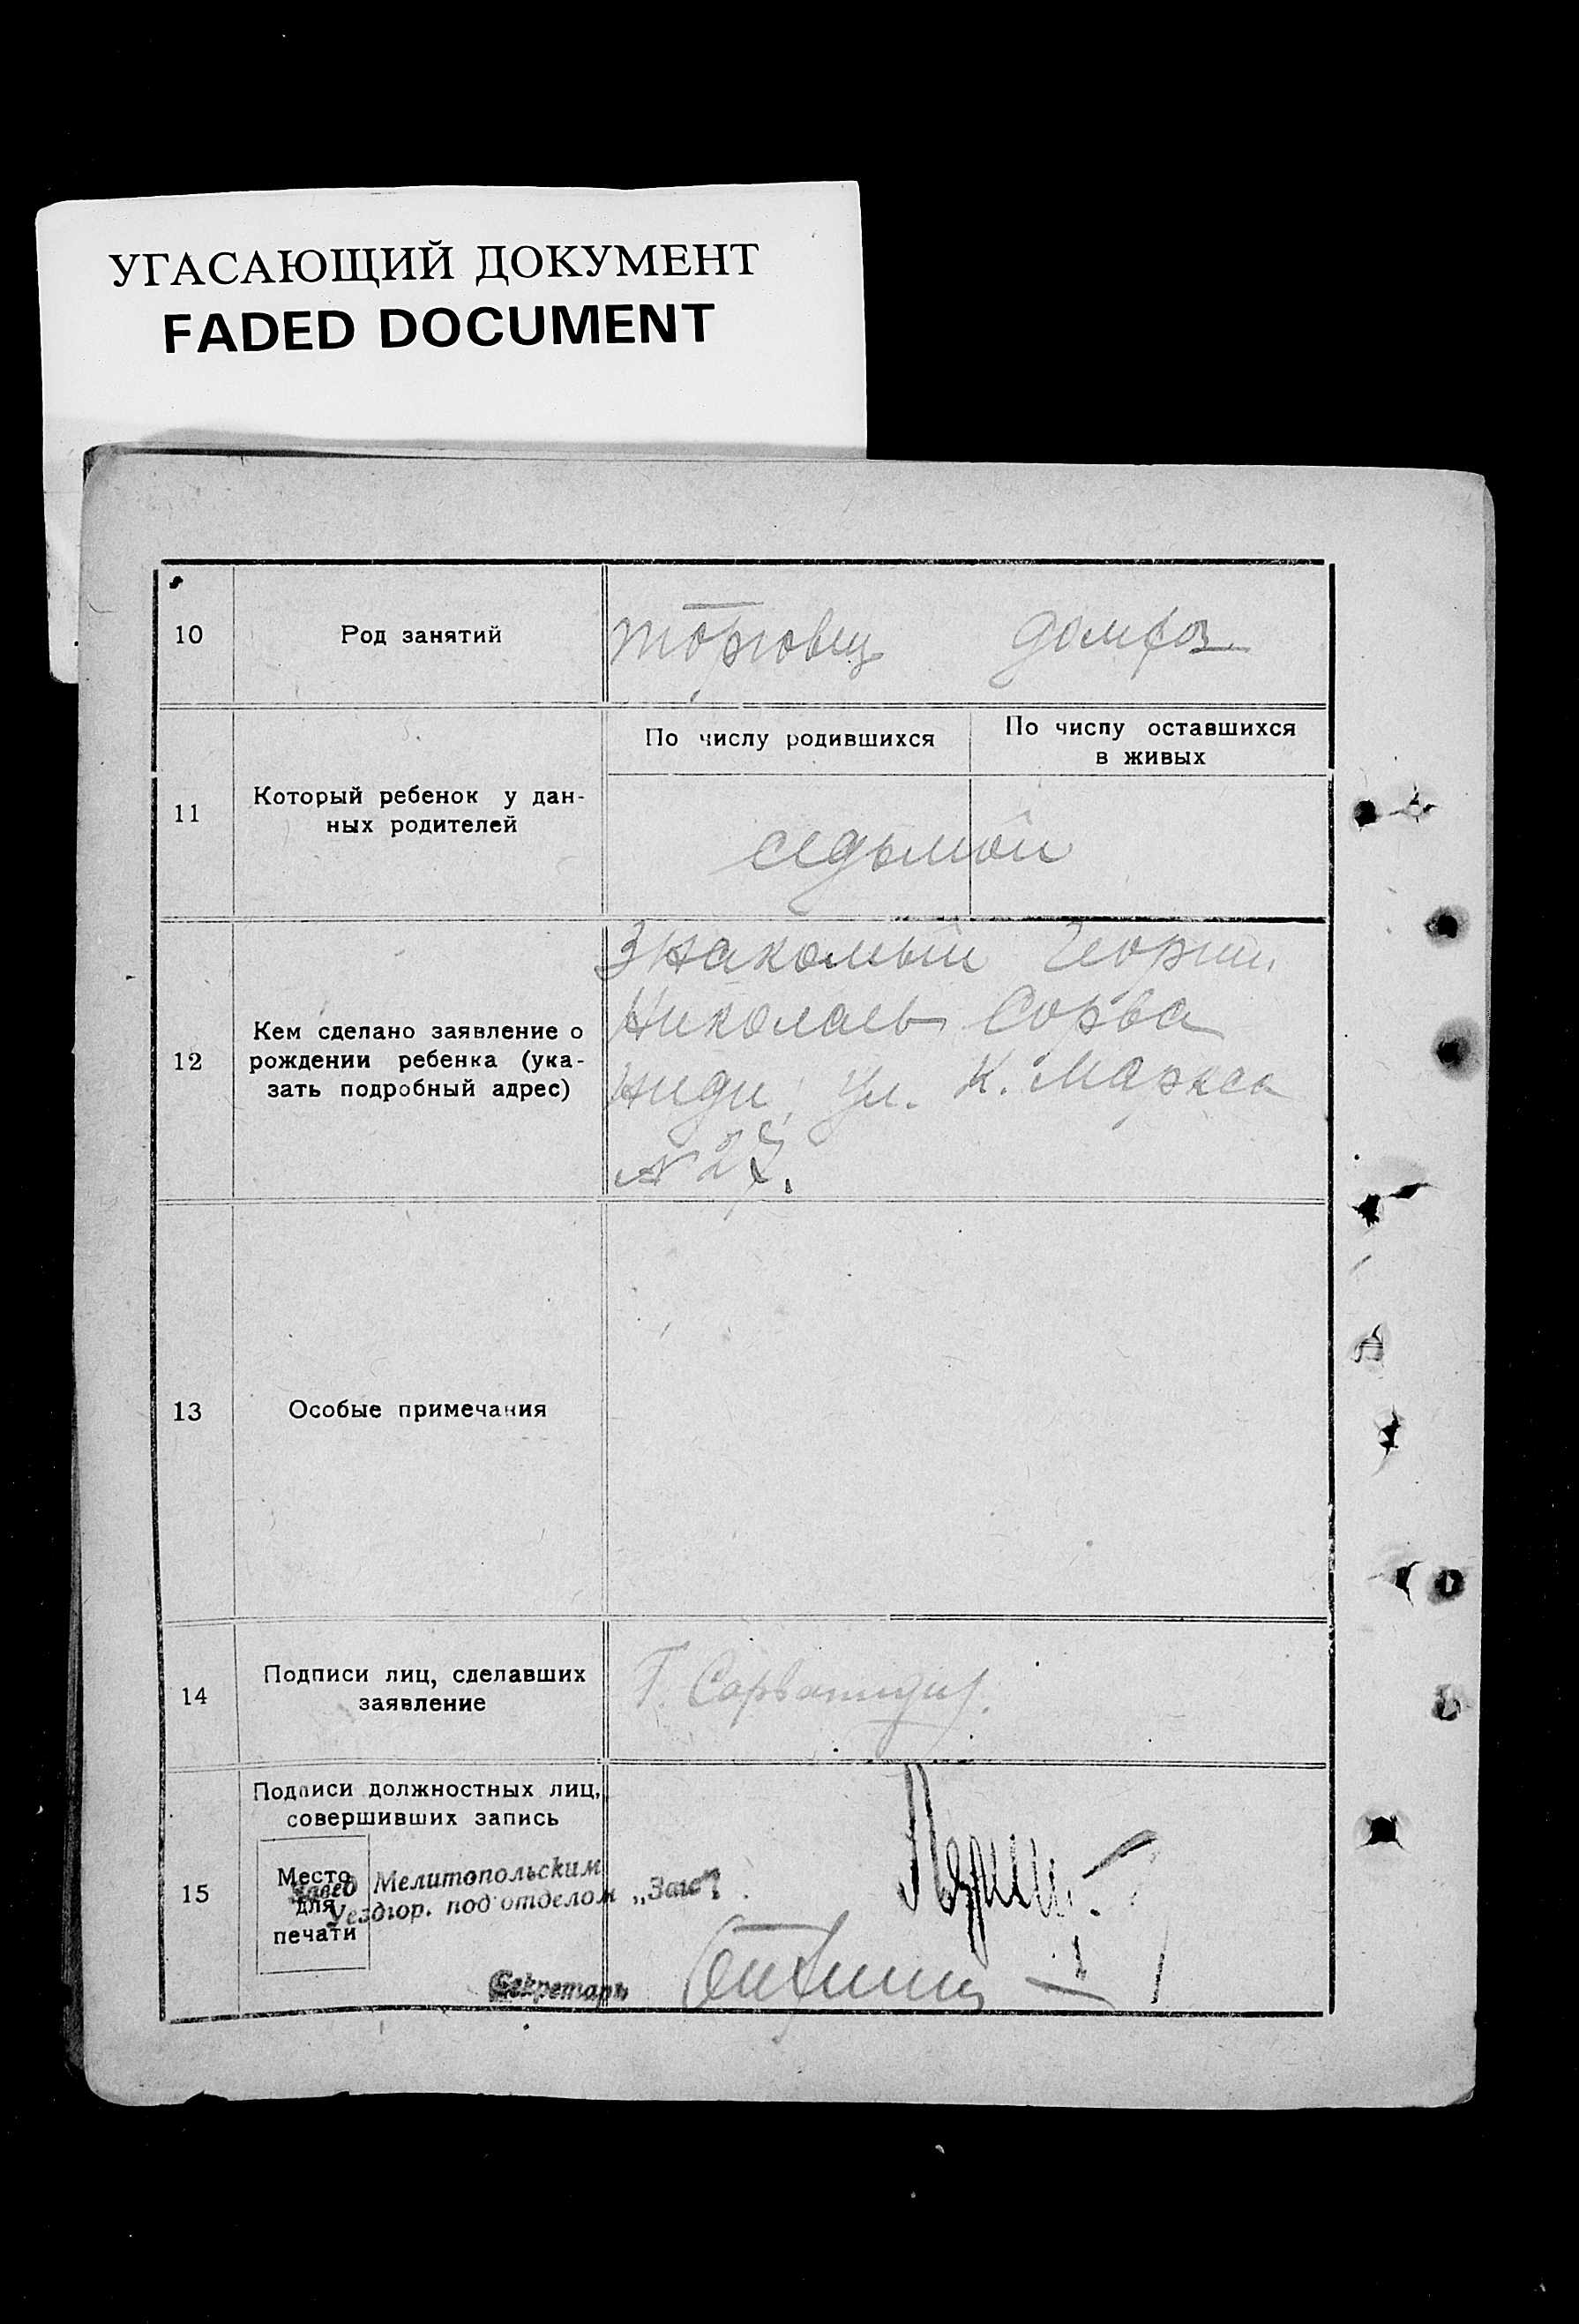 УГАСАЮЩИЙ ДОКУМЕНТ
FADED DOCUMENT
10
Род занятий
торговец
домхоз
11
Который ребенок у дан-
ных родителей
По числу родившихся
По числу оставшихся
в живых
седьмой
12
Кем сделано заявление о
рождении ребенка (ука-
зать подробный адрес)
Знакомый Георгий
Николаев Сорва
ниди, ул. К. Маркса
№ 27.
13
Особые примечания
14
Подписи лиц, сделавших
заявление
Г. Сорваниди
15
Подписи должностных лиц,
совершивших запись
Место
для
печати
Завед Мелитопольским
Уездгор. под'отделом „Загс"
Секретарь